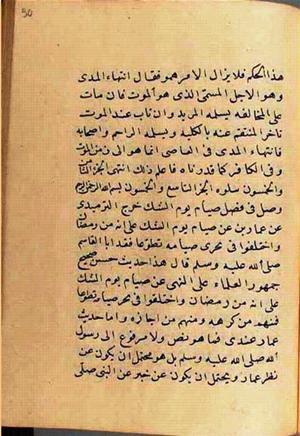 50
هذا الحكم فلا يزال الامر هو فقال انتهاء المدى
وهو الاجل المسمى الذى هو الموت فان مات
على المخالفة تسلمه المريد وان تاب عند الموت
تاخر المنتقم عنه بالكلية وتسلمه الراحم واصحابه
فانتهاء المدى فى العاصى انما هو الى زمن الموت
وفى الكافر كما قدرناه فاعلم ذلك انتهى الجزء الثامن
والخمسون يتلوه الجزء التاسع والخمسون بسم الله الرحمن الرحيم
وصل فى فصل صيام يوم الشك خرج الترميذى
عن عمار بن عن صيام يوم الشك على انه من رمضان
واختلفوا فى تحرى صيامه تطوعا فقد ابا القاسم
صلى الله عليه وسلم قال هذا حديث حسن صحيح
جمهور العلماء على النهى عن صيام يوم الشك
على انه من رمضان واختلفوا فى تحر صيامه تطوعا
فمنهم من كرهه ومنهم من اجازه واما حديث
عمار عندى فما هو نص ولا مرفوع الى رسول
الله صلى الله عليه وسلم بل هو محتمل ان يكون عن
نظر عمار ويحتمل ان يكون عن خبر عن النبى صلى